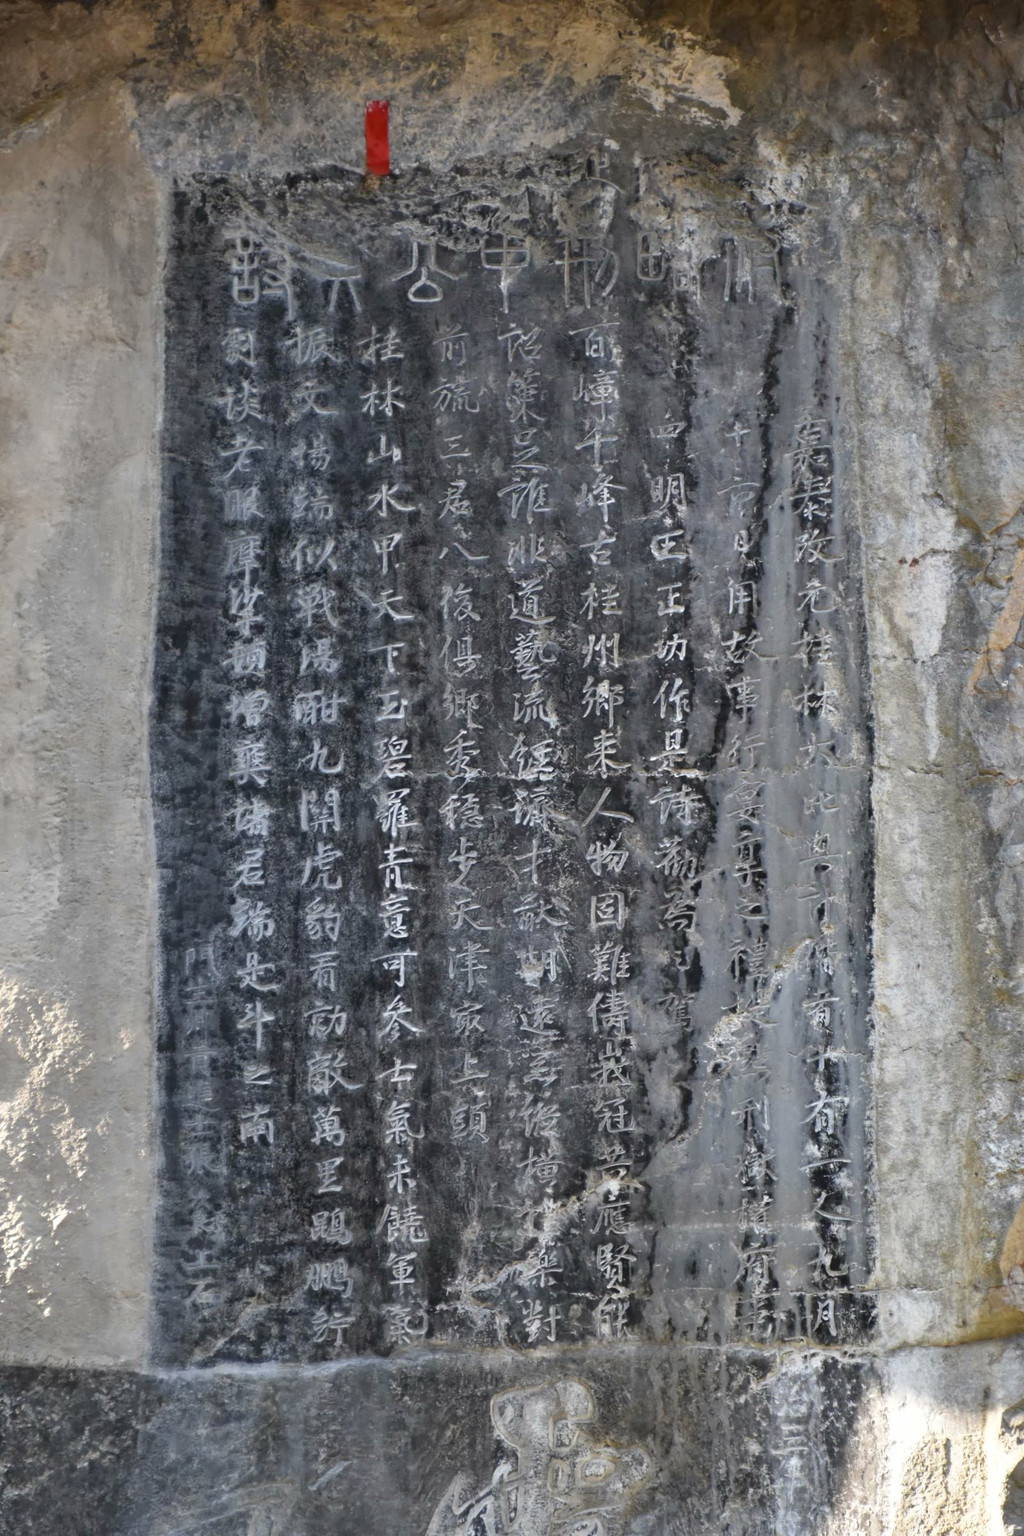 嘉泰改元桂林大比與計偕者十有一人九月
十六日用故事行宴享之禮提點刑獄權府事
四明王正功作是詩勸爲之駕
百嶂千峰古桂州鄉來人物固難儔峩冠共應賢能
詔策足誰非道藝流經濟才猷期遠器縱橫禮樂對
前旒三君八俊俱鄉秀穩步天津最上頭
桂林山水甲天下玉碧羅青意可參士氣未饒軍氣
振文場端似戰場酣九關虎豹看勍敵萬里鵾鵬佇
劇談老眼摩挲頓增爽諸君端是斗之南
門生鄉貢進士張上石